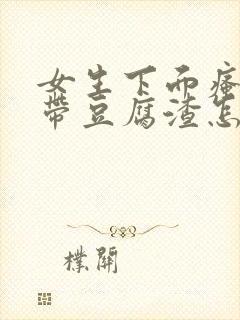 女生下而瘙
带豆腐渣怎
樸開